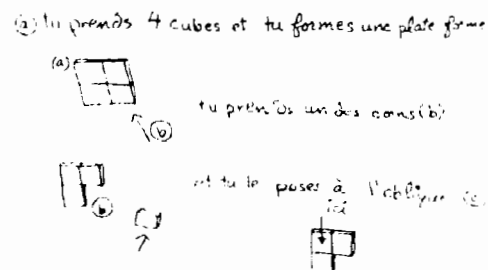 ② tu prends 4 cubes et tu formes une plate forme
(a)
(b)
tu prends un des coins (b)
(b)
et tu le poses à l'oblique (c)
ici